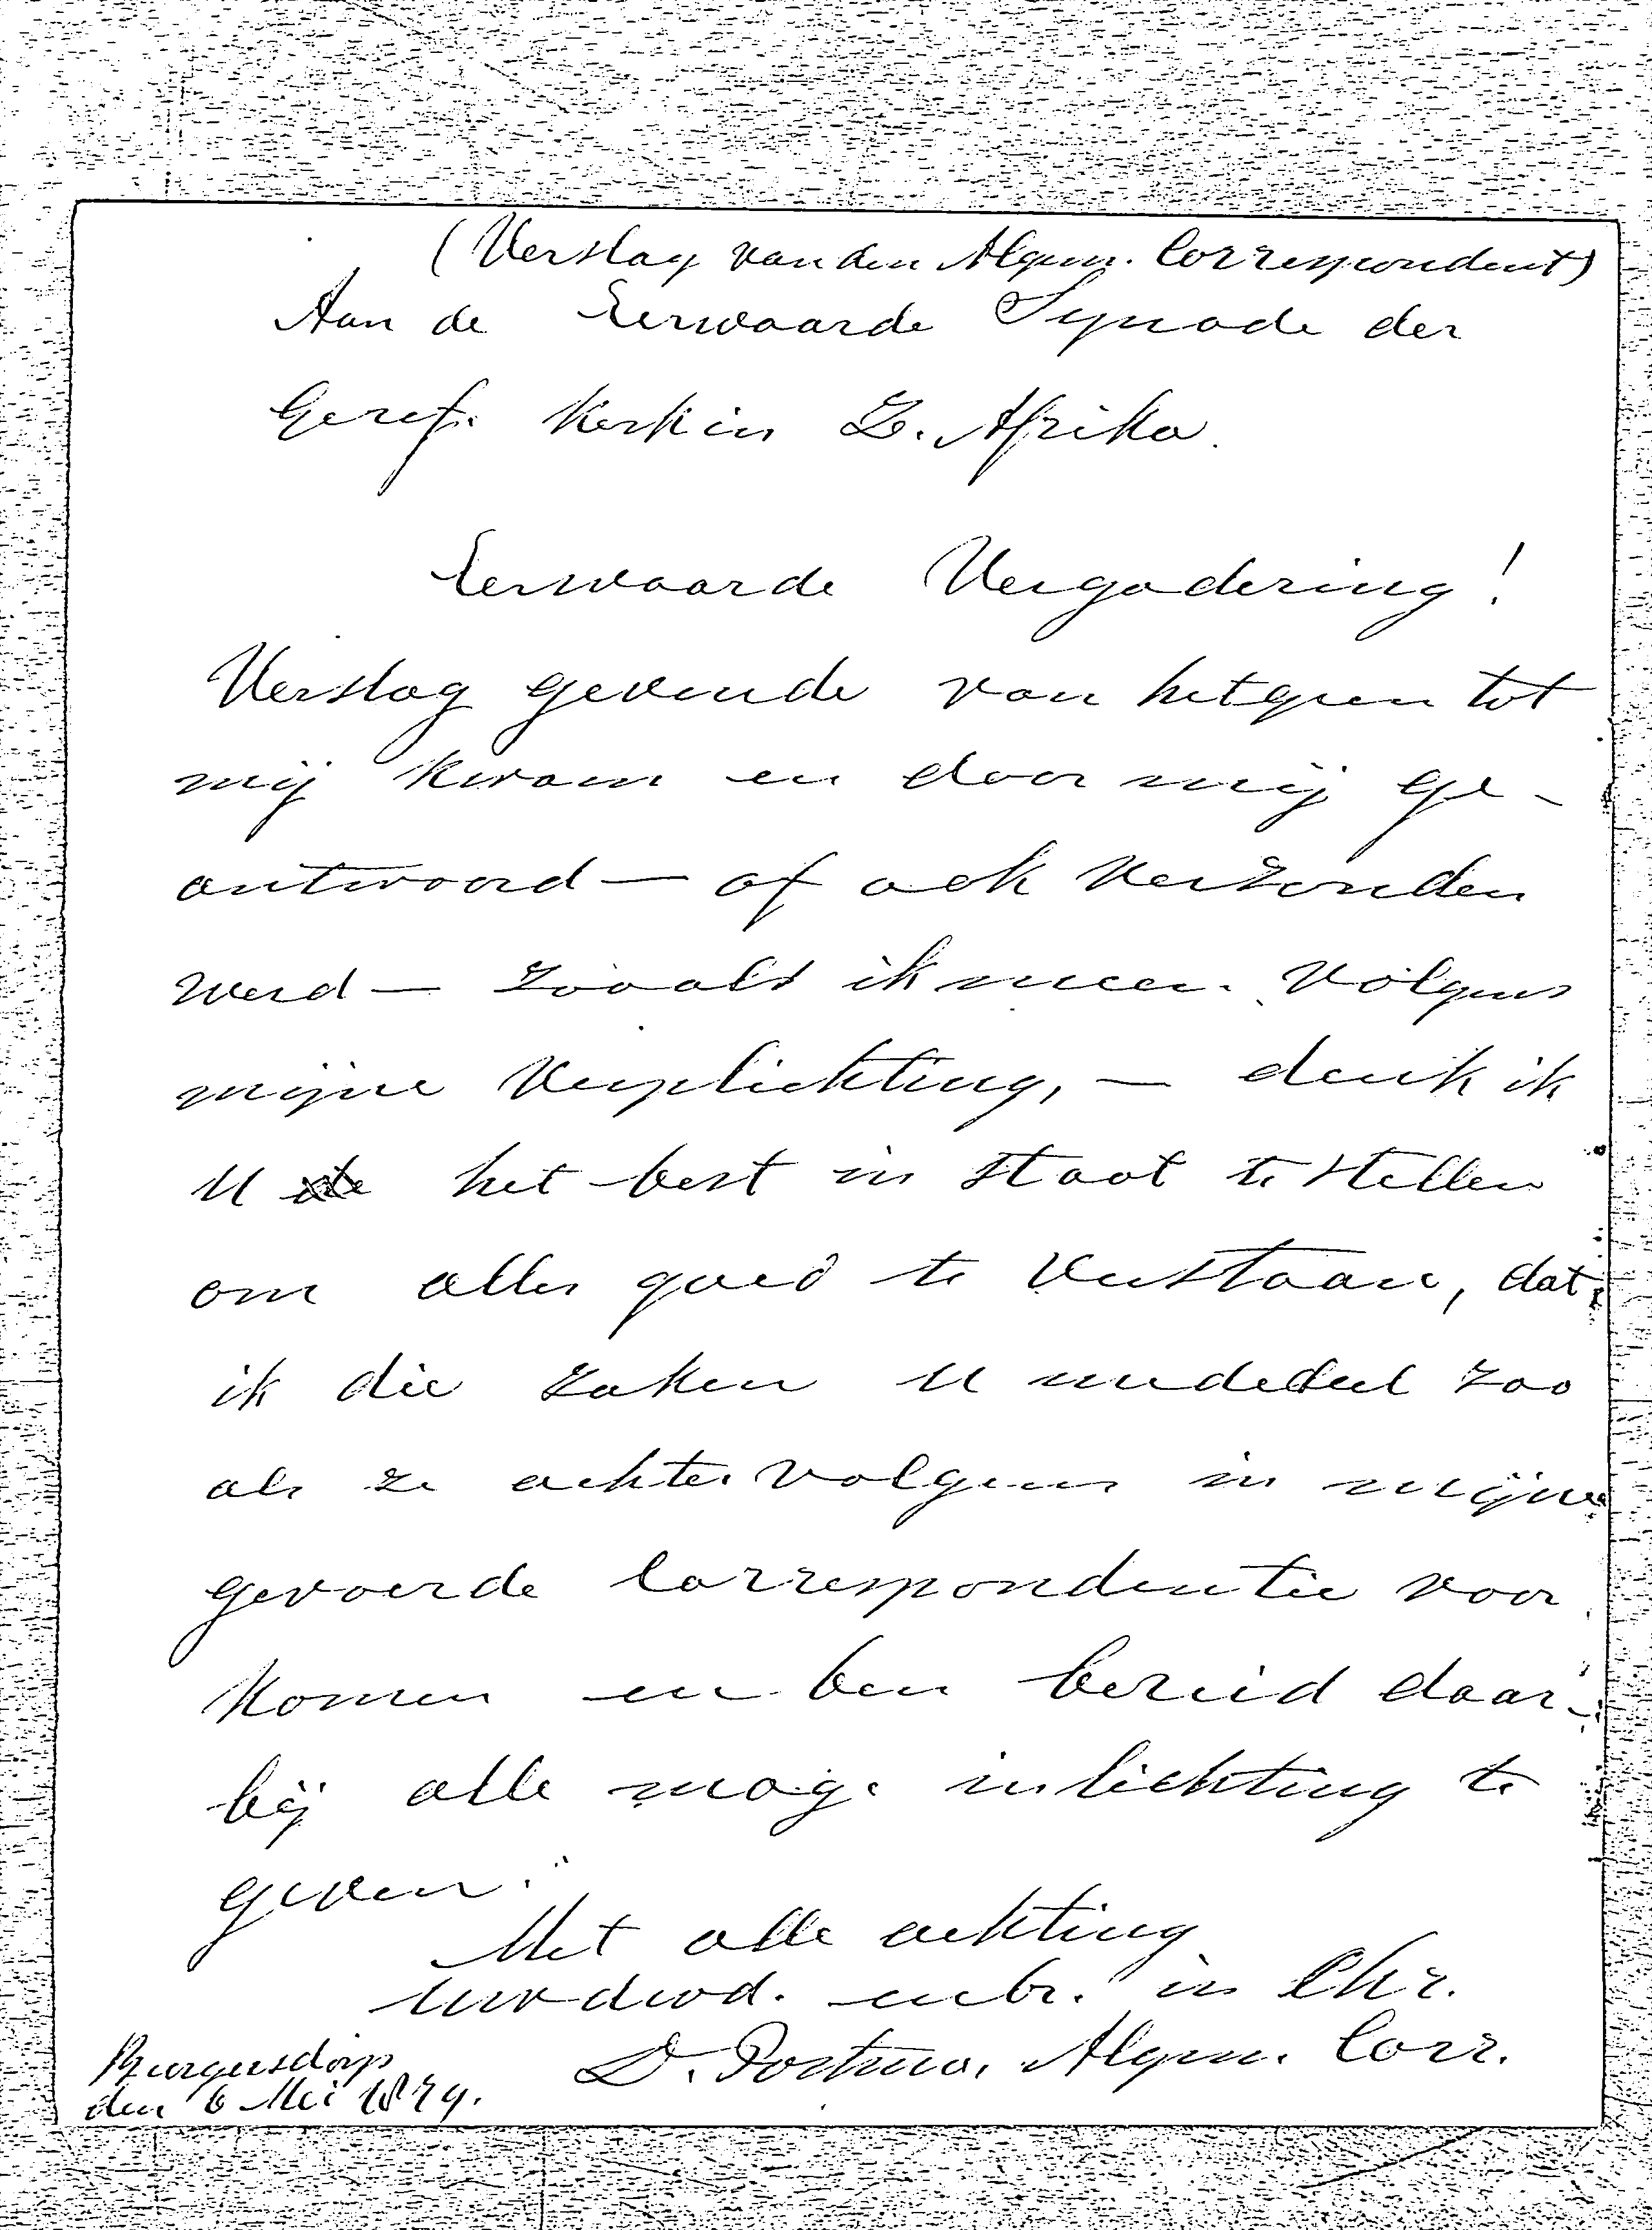 (Verslag van den Algem. Correspondent)
Aan de Eerwaarde Synode der
Geref. Kerk in Z. Afrika.
Eerwaarde Vergadering!
Verslag gevende van hetgeen tot
mij kwam en door mij ge-
antwoord — of ook verzonden
werd — zooals ik meen. Volgens
mijne verplichting, — denk ik
U het best in staat te stellen
om alles goed te verstaan, dat
ik die zaken U mededeel zoo
als ze achtervolgens in mijne
gevoerde Correspondentie voor
komen en ben bereid daar-
bij alle mog. inlichting te
geven.
Met alle achting
Uw dwd. mbr. in Chr.
D. Postma, Algem. Corr.
Burgersdorp
den 6 Mei 1879.